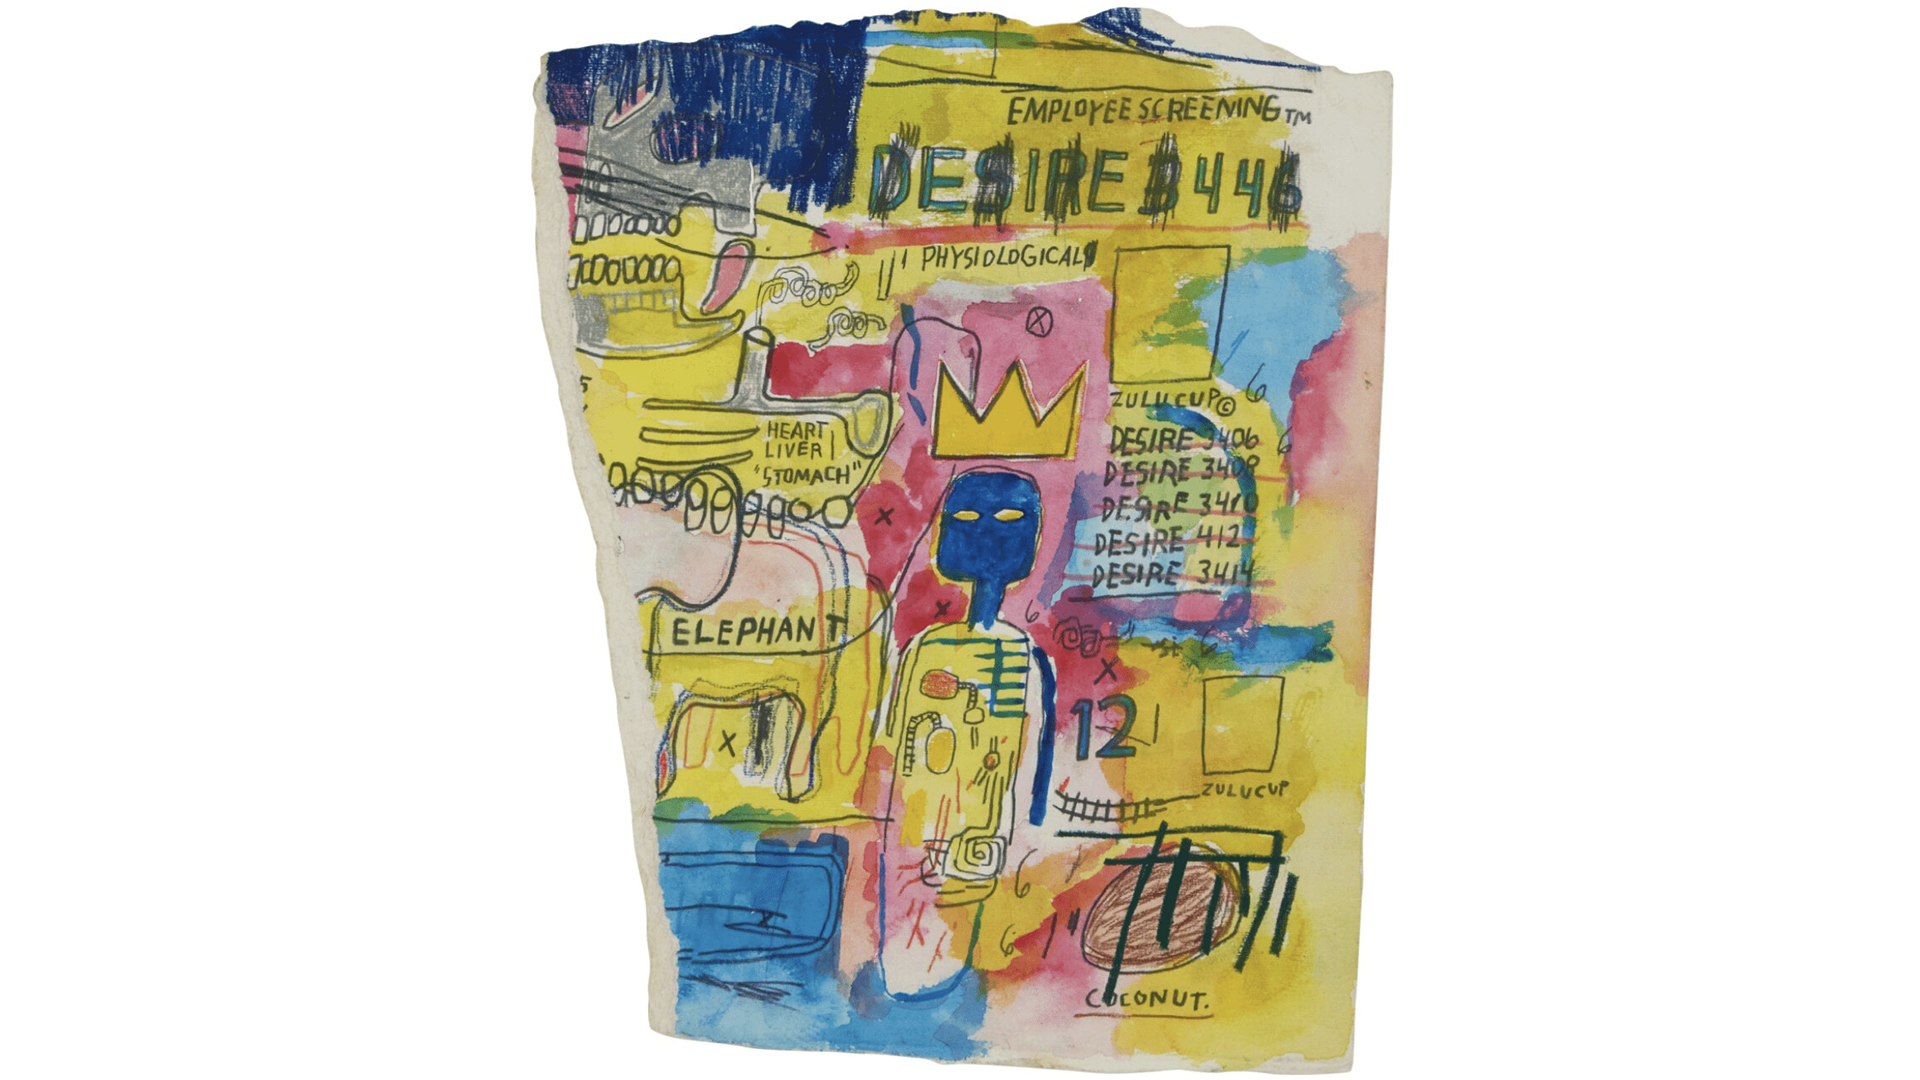 EMPLOYEE SCREENING TM
DESIRE 3446
PHYSIOLOGICAL
ZULU CUP ©
DESIRE 3406
DESIRE 3408
DESIRE 3410
DESIRE 412
DESIRE 3414
HEART
LIVER
"STOMACH"
X
X
6
6
6
X
6
ELEPHANT
X
12
ZULU CUP
6
6
COCONUT.